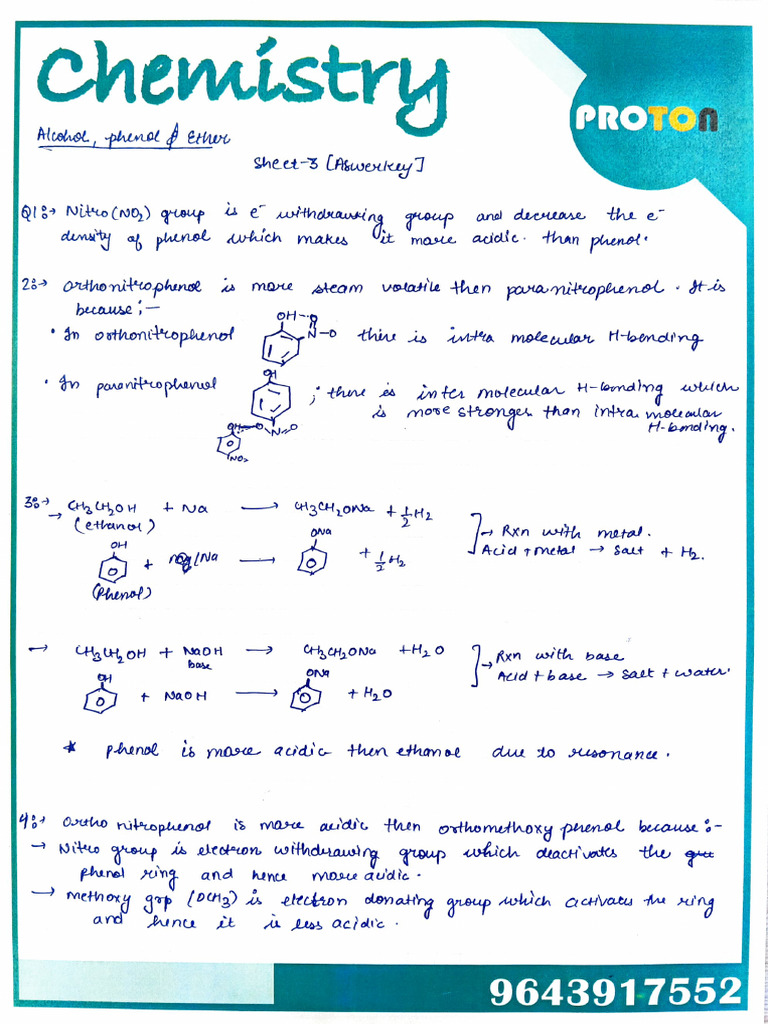 Chemistry
PROTON
Alcohol, phenol & Ether
Sheet-3 [Aswerkey]
Q1:→ Nitro (NO2) group is e⁻ withdrawing group and decrease the e⁻
density of phenol which makes it more acidic than phenol.
2:→ Orthonitrophenol is more steam volatile then paranitrophenol. It is
because:—
• In orthonitrophenol OH---O N–O there is intra molecular H-bending
• In paranitrophenol OH ; there is inter molecular H-bonding which
is more stronger than intra molecular
OH O–N=O H-bonding.
NO2
3:→ → CH3CH2OH + Na → CH3CH2ONa + 1/2 H2
(ethanol) → Rxn with metal.
OH + /Na → ONa + 1/2 H2 Acid + metal → Salt + H2.
(Phenol)
→ CH3CH2OH + NaOH → CH3CH2ONa + H2O → Rxn with base
base Acid + base → Salt + water.
OH + NaOH → ONa + H2O
* phenol is more acidic then ethanol due to resonance.
4:→ Ortho nitrophenol is more acidic then orthomethoxy phenol because:-
→ Nitro group is electron withdrawing group which deactivates the
phenol ring and hence more acidic.
→ methoxy grp (OCH3) is electron donating group which activates the ring
and hence it is less acidic.
9643917552